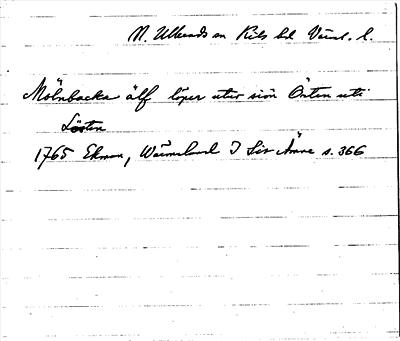 N. Ullerud sn Kils hd Värml. l.
Mölnbacka älf löper utur siön Örten uti
Lösten
1765 Ekman, Wärmeland I Sin Ämne s. 366